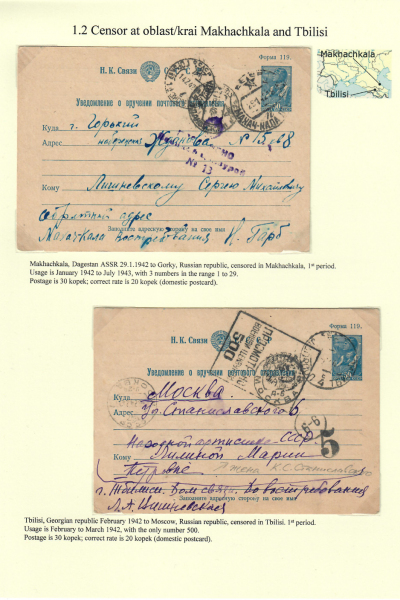 1.2 Censor at oblast/krai Makhachkala and Tbilisi
Makhachkala
Tbilisi
Форма 119.
Н. К. Связи
Уведомление о вручении почтового отправления
Куда г. Горький
Адрес набережная Жданова № 15
Кому Лишневскому Сергею Михайловичу
обратный адрес
Заполните адресную сторону на свое имя
Махачкала востребования
№ 13
Makhachkala, Dagestan ASSR 29.1.1942 to Gorky, Russian republic, censored in Makhachkala, 1st period.
Usage is January 1942 to July 1943, with 3 numbers in the range 1 to 29.
Postage is 30 kopek; correct rate is 20 kopek (domestic postcard).
Форма 119.
Н. К. Связи
500
Уведомление о вручении почтового отправления
Куда Москва
Адрес Ул. Станиславского 6
6-6
5
Народной артистке СССР
Кому Лилиной Марии
Петровне
жена К.С. Станиславского
г. Тбилиси. Дом связи. До востребования
Заполните адресную сторону на свое имя
Л.А. Вишневская
Tbilisi, Georgian republic February 1942 to Moscow, Russian republic, censored in Tbilisi. 1st period.
Usage is February to March 1942, with the only number 500.
Postage is 30 kopek; correct rate is 20 kopek (domestic postcard).